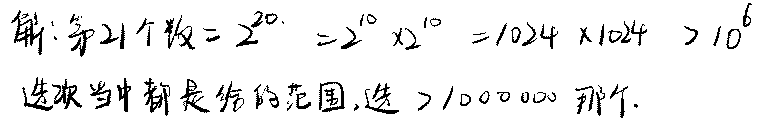 解:第21个数=2^20.=2^10×2^10=1024×1024>10^6
选项当中都是给的范围,选>1000000那个.